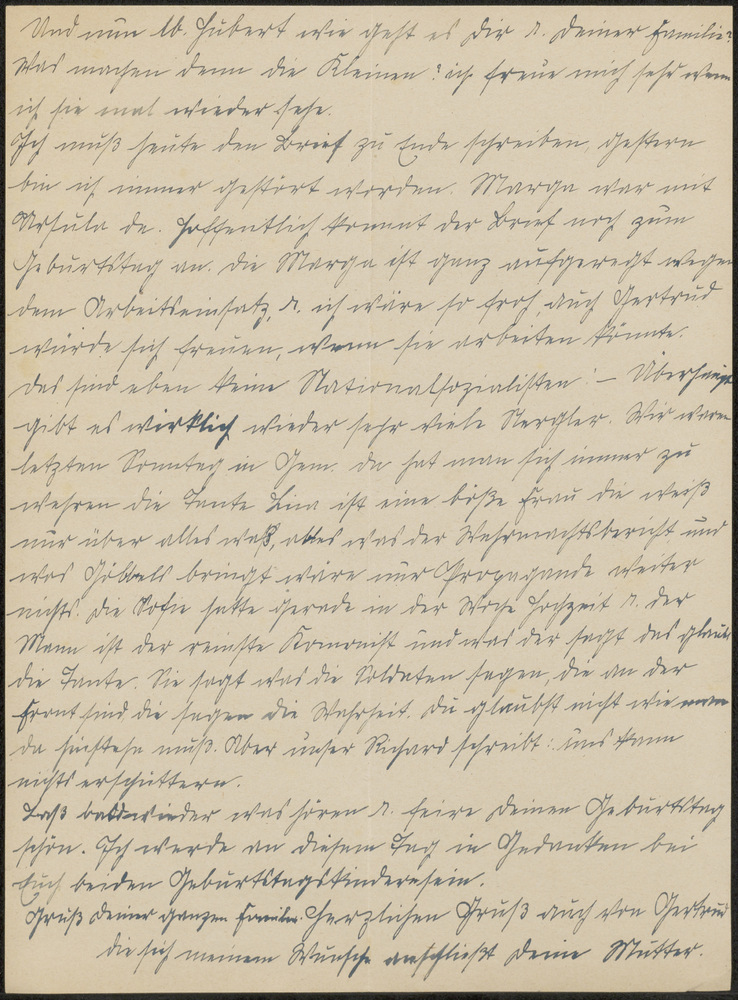 Und nun lb. Hubert wie geht es Dir u. Deiner Familie?
Was machen denn die Kleinen? ich freue mich sehr wenn
ich sie mal wieder sehe.
Ich muß heute den Brief zu Ende schreiben, gestern
bin ich immer gestört worden. Marga war mit
Ursula da. Hoffentlich kommt der Brief noch zum
Geburtstag an. Die Marga ist ganz aufgeregt wegen
dem Arbeitseinsatz, u. ich wäre so froh, auch Gertrud
würde sich freuen, wenn sie arbeiten könnte.
Das sind eben keine Nationalsozialisten! – Überhaupt
gibt es wirklich wieder sehr viele Nergler. Wir waren
letzten Sonntag in Gem. da hat man sich immer zu
wehren die Tante Lina ist eine böße Frau die weiß
nur über alles was, alles was der Wehrmachtsbericht und
was Göbbels bringt wäre nur Propagande weiter
nichts. Die Sofie hatte gerade in der Woche Hochzeit u. der
Mann ist der reinste Komonist und was der sagt das glaubt
die Tante. Sie sagt was die Soldaten sagen, die an der
Front sind die sagen die Wahrheit. Du glaubst nicht wie man
da hinstehn muß. Aber unser Richard schreibt: uns kann
nichts erschüttern.
Laß bald wieder was hören u. feire Deinen Geburtstag
schön. Ich werde an diesem Tag in Gedanken bei
Euch beiden Geburtstagskinder sein.
Gruß Deiner ganzen Familie. Herzlichen Gruß auch von Gertrud
die sich meinem Wunsche anschließt Deine Mutter.